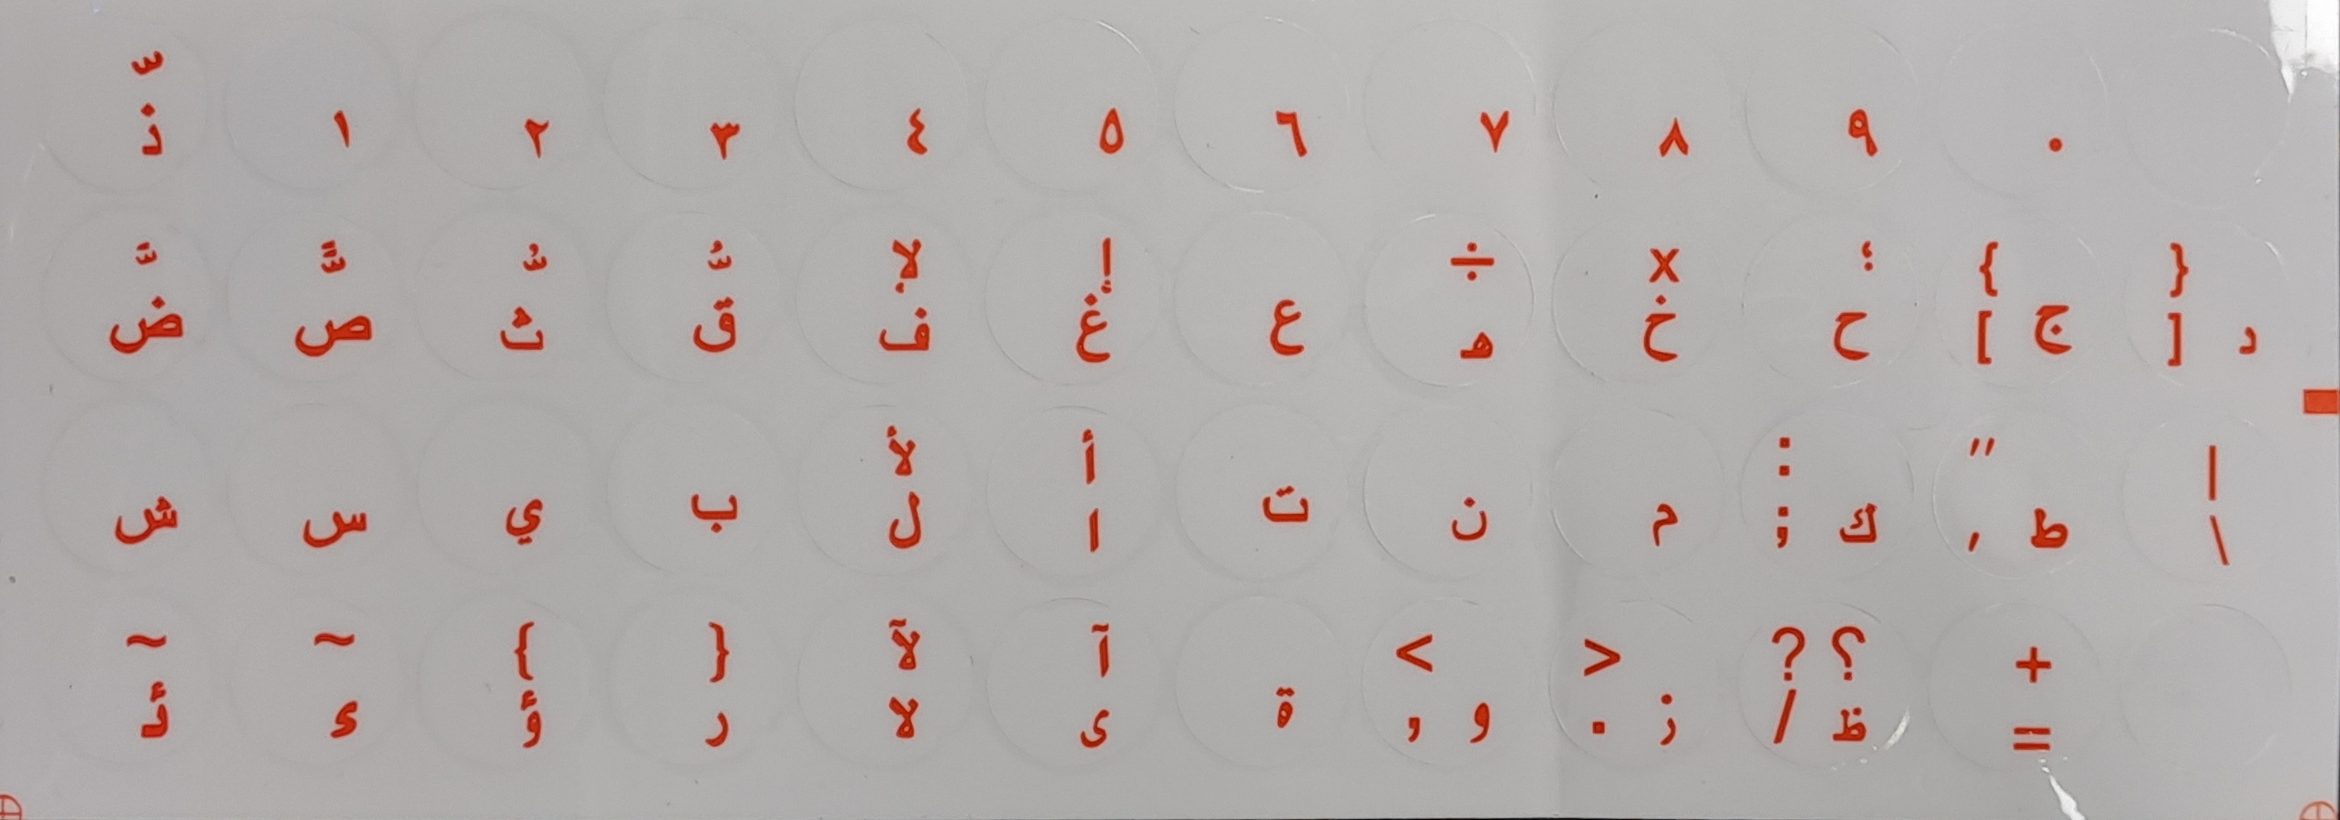 ّ ١ ٢ ٣ ٤ ٥ ٦ ٧ ٨ ٩ ٠
ذ
َّ ًّ ُّ ٌّ لإ إ ÷ x ؛ { }
ض ص ث ق ف غ ع ه خ ح [ ج ] د
لأ أ : " |
ش س ي ب ل ا ت ن م ; ك ' ط \
~ ~ { } لآ آ < > ? ؟ +
ئ ء ؤ ر لا ى ة , و . ز / ظ =